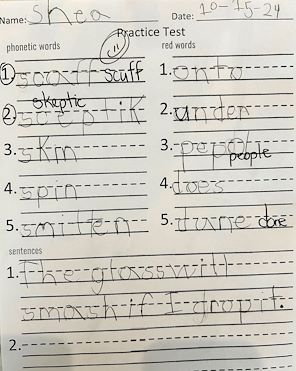 Name: Shea Date: 10-15-24
Practice Test
phonetic words red words
1. scuff 1. onto
skeptic
2. sceptik 2. under
3. skin 3. pepol people
4. spin 4. does
5. smitten 5. dune done
sentences
1. The glass will
smash if I drop it.
2.